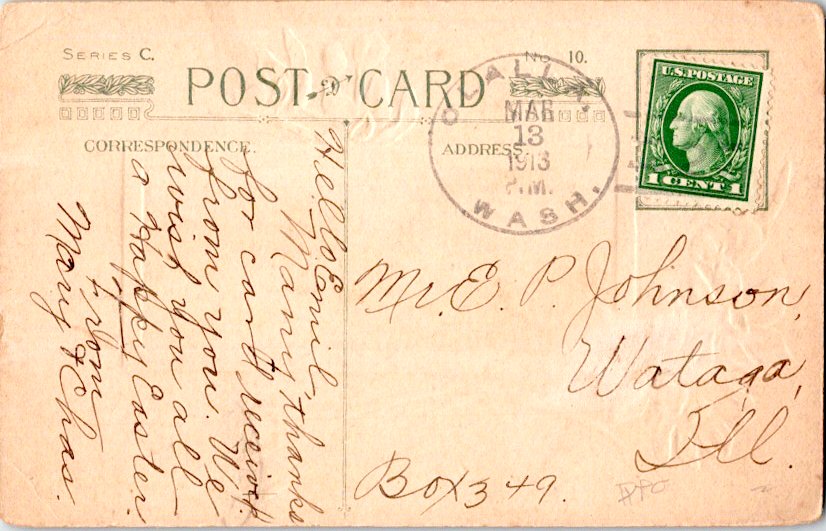 SERIES C.
No. 10.
POST CARD
CORRESPONDENCE.
ADDRESS.
OLALLA,
MAR
13
1913
P.M.
WASH.
U.S. POSTAGE
1 CENT 1
Hello Emil,
Many thanks
for card received
from you. We
wish you all
a Happy Easter.
From
Mary & Chas.
Mr. E. P. Johnson,
Wataga,
Ill.
Box 349.
DPO